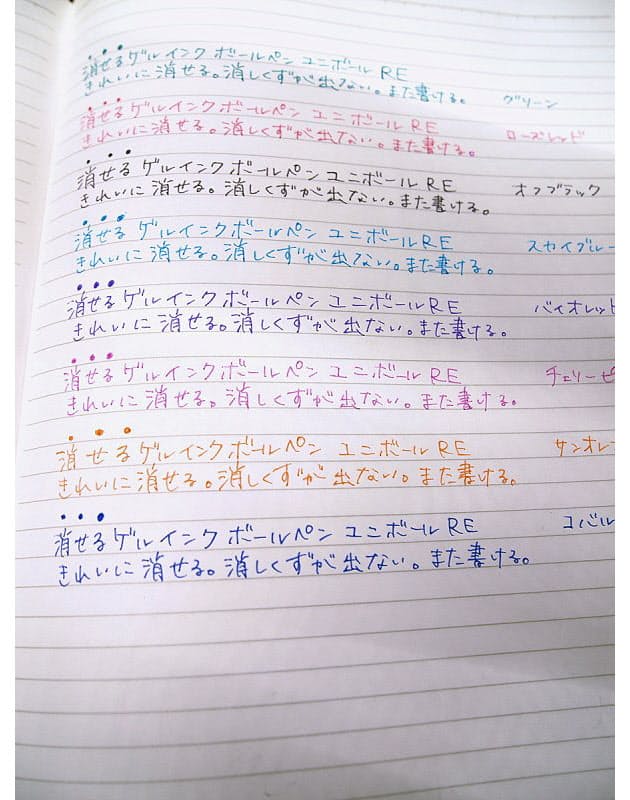 消せるゲルインクボールペン ユニボール RE
きれいに消せる。消しくずが出ない。また書ける。 グリーン
消せるゲルインクボールペン ユニボール RE ローズレッド
きれいに消せる。消しくずが出ない。また書ける。
消せるゲルインクボールペン ユニボール RE オフブラック
きれいに消せる。消しくずが出ない。また書ける。
消せるゲルインクボールペン ユニボール RE スカイブルー
きれいに消せる。消しくずが出ない。また書ける。
消せるゲルインクボールペン ユニボール RE バイオレット
きれいに消せる。消しくずが出ない。また書ける。
消せるゲルインクボールペン ユニボール RE チェリーピ
きれいに消せる。消しくずが出ない。また書ける。
消せるゲルインクボールペン ユニボール RE サンオレ
きれいに消せる。消しくずが出ない。また書ける。
消せるゲルインクボールペン ユニボール RE コバル
きれいに消せる。消しくずが出ない。また書ける。